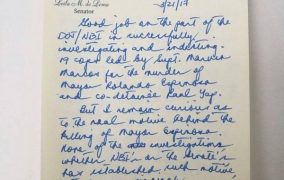 Leila M. de Lima
Senator
3/21/17
Good job on the part of the
DOJ/NBI in successfully
investigating and indicting
19 cops led by Supt. Marvin
Marcos for the murder of
Mayor Rolando Espinosa
and co-detainee Raul Yap.
But I remain curious as
to the real motive behind the
killing of Mayor Espinosa.
None of the investigations
whether NBI's or the Senate's
has established such motive